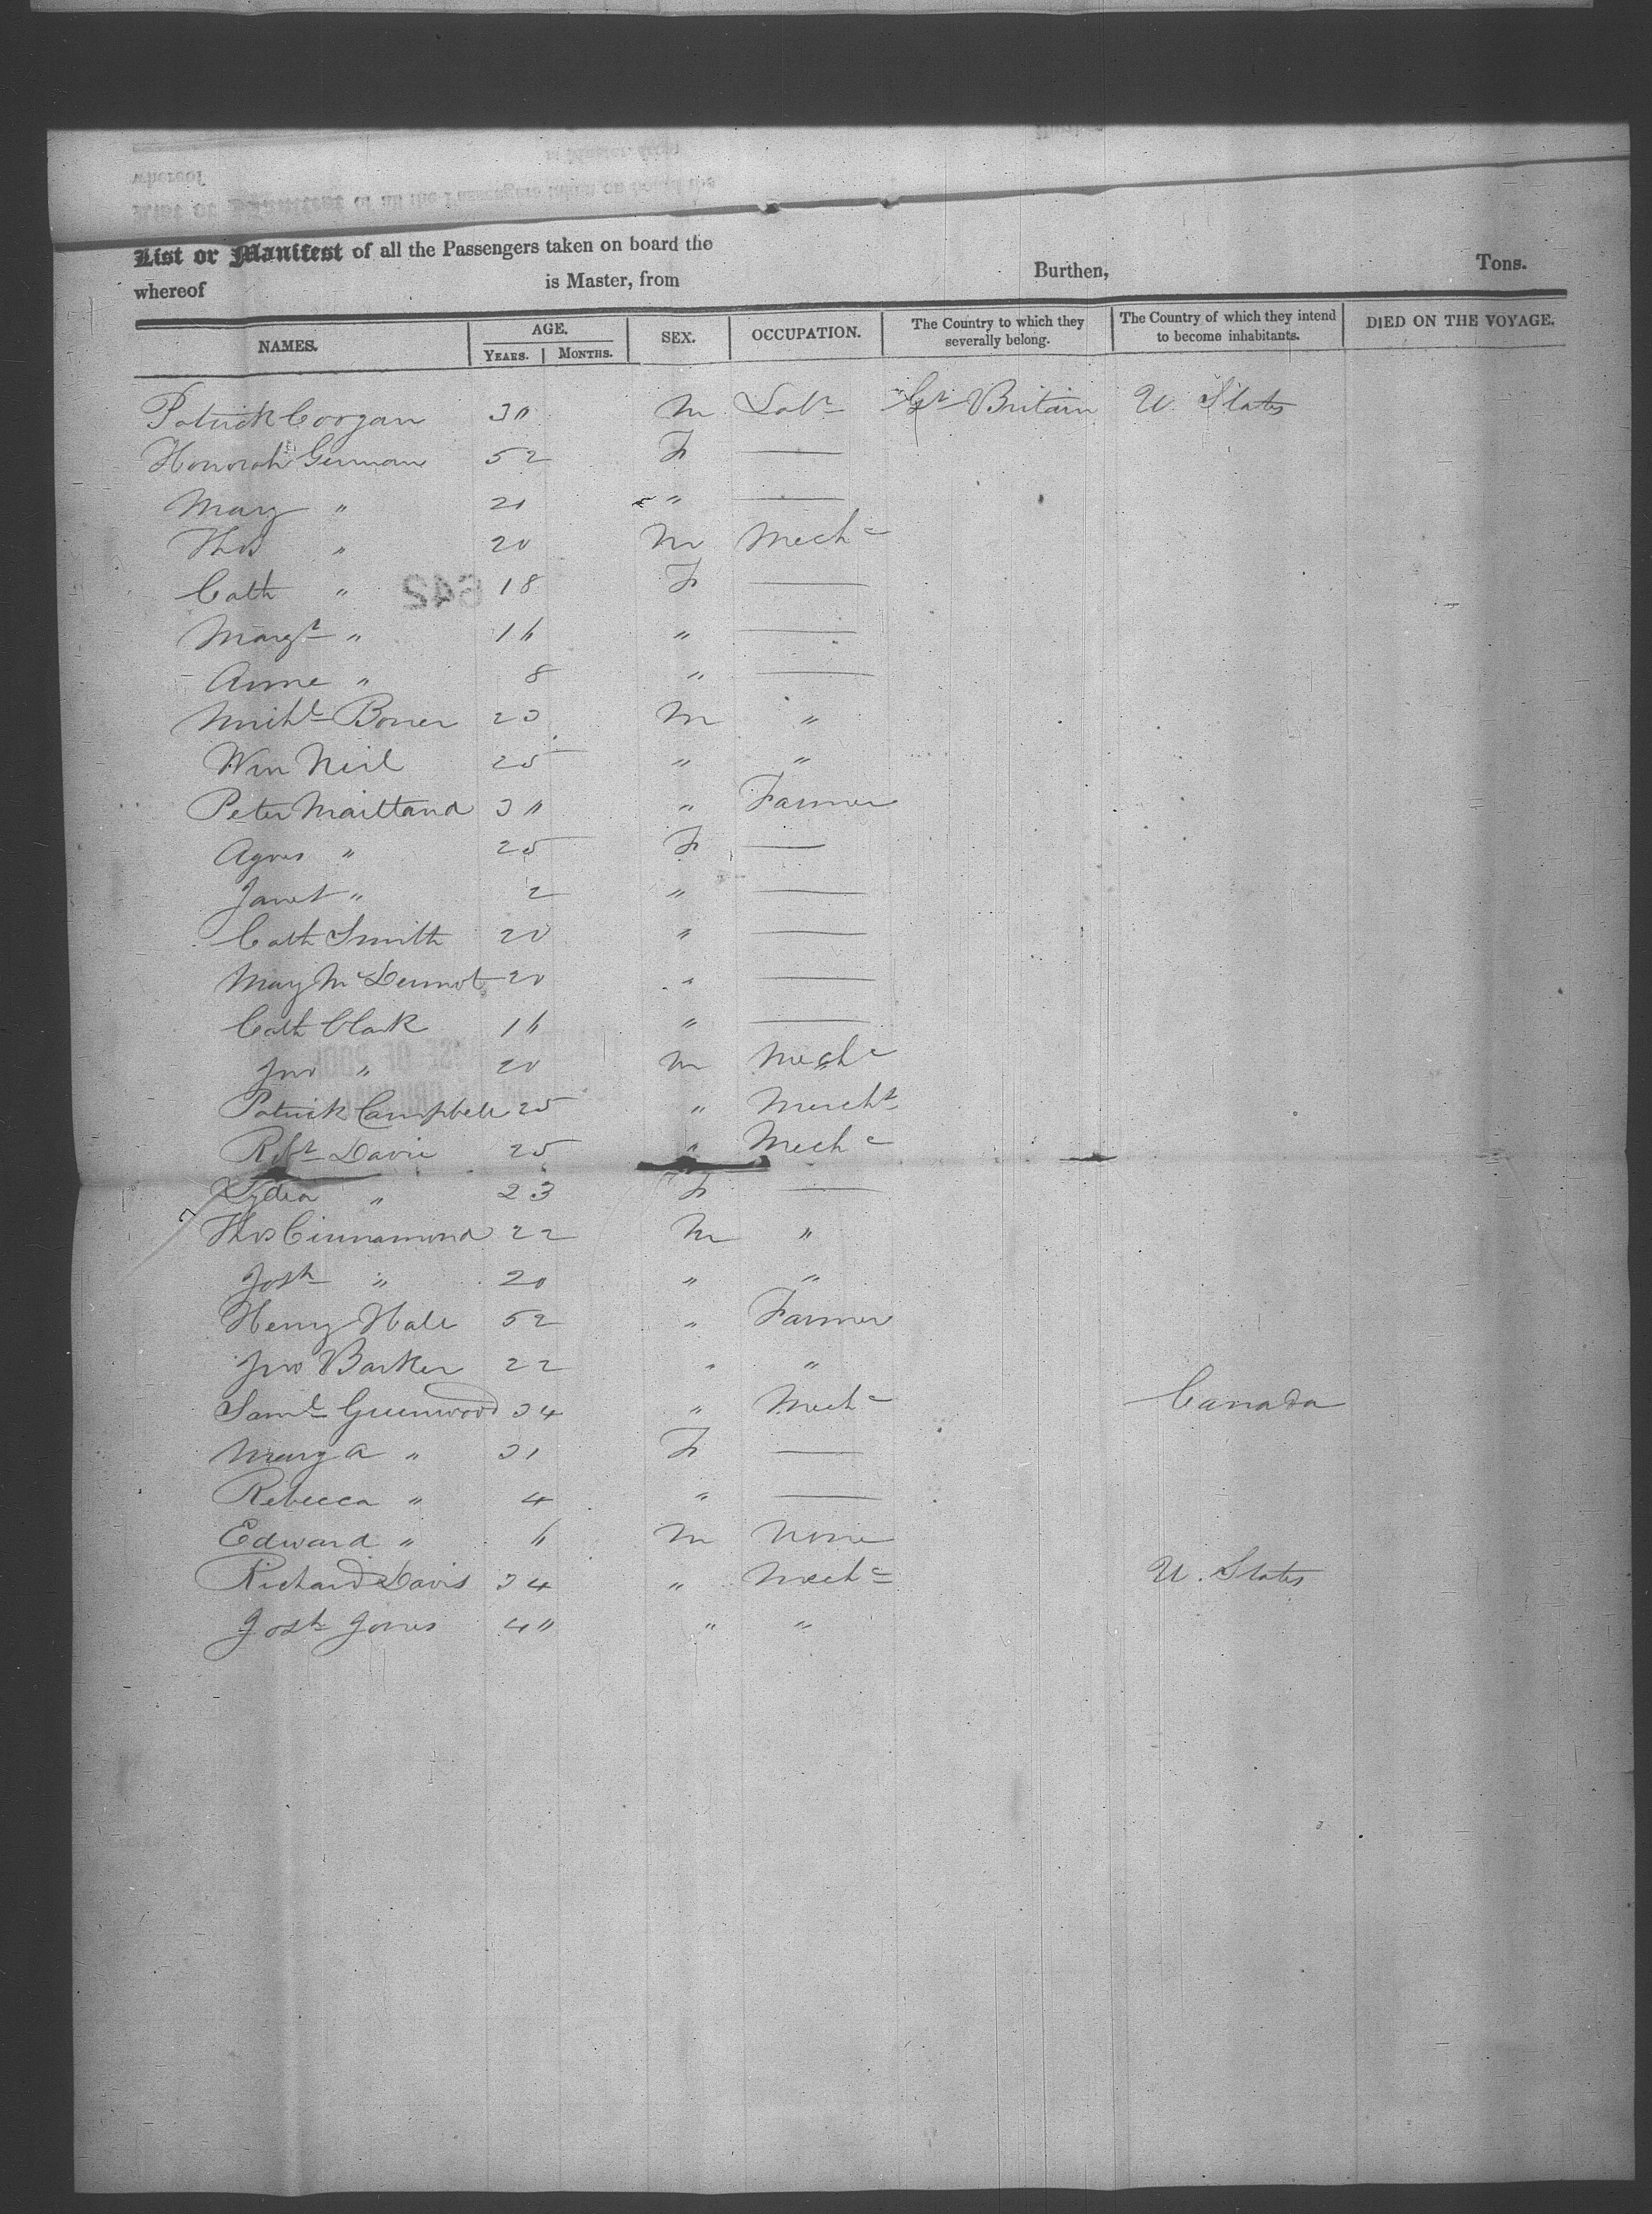 List or Manifest of all the Passengers taken on board the
whereof is Master, from Burthen, Tons.
NAMES. AGE. YEARS. MONTHS. SEX. OCCUPATION. The Country to which they severally belong. The Country of which they intend to become inhabitants. DIED ON THE VOYAGE.
Patrick Coogan 30 M Labr Gt Britain U. States
Honorah Germane 52 F —
Mary " 20 " —
Thos " 20 M Mechc
Cath " 18 F —
Margt " 16 " —
Anne " 8 " —
Michl Boner 23 M "
Wm Neil 25 " "
Peter Maitland 30 " Farmer
Agnes " 25 F —
Janet " 2 " —
Cath Smith 20 " —
Mary McDermot 20 " —
Cath Clark 16 " —
Jno " 20 M Mechc
Patrick Campbell 25 " Mercht
Robt Davie 25 " Mechc
Lydia " 23 F —
Thos Cinnamond 22 M "
Josh " 20 " "
Henry Hale 52 " Farmer
Jno Barker 22 " "
Saml Greenwood 34 " Mechc Canada
Mary A " 31 F —
Rebecca " 4 " —
Edward " 6 M None
Richard Davis 34 " Mechc U. States
Josh Jones 40 " "